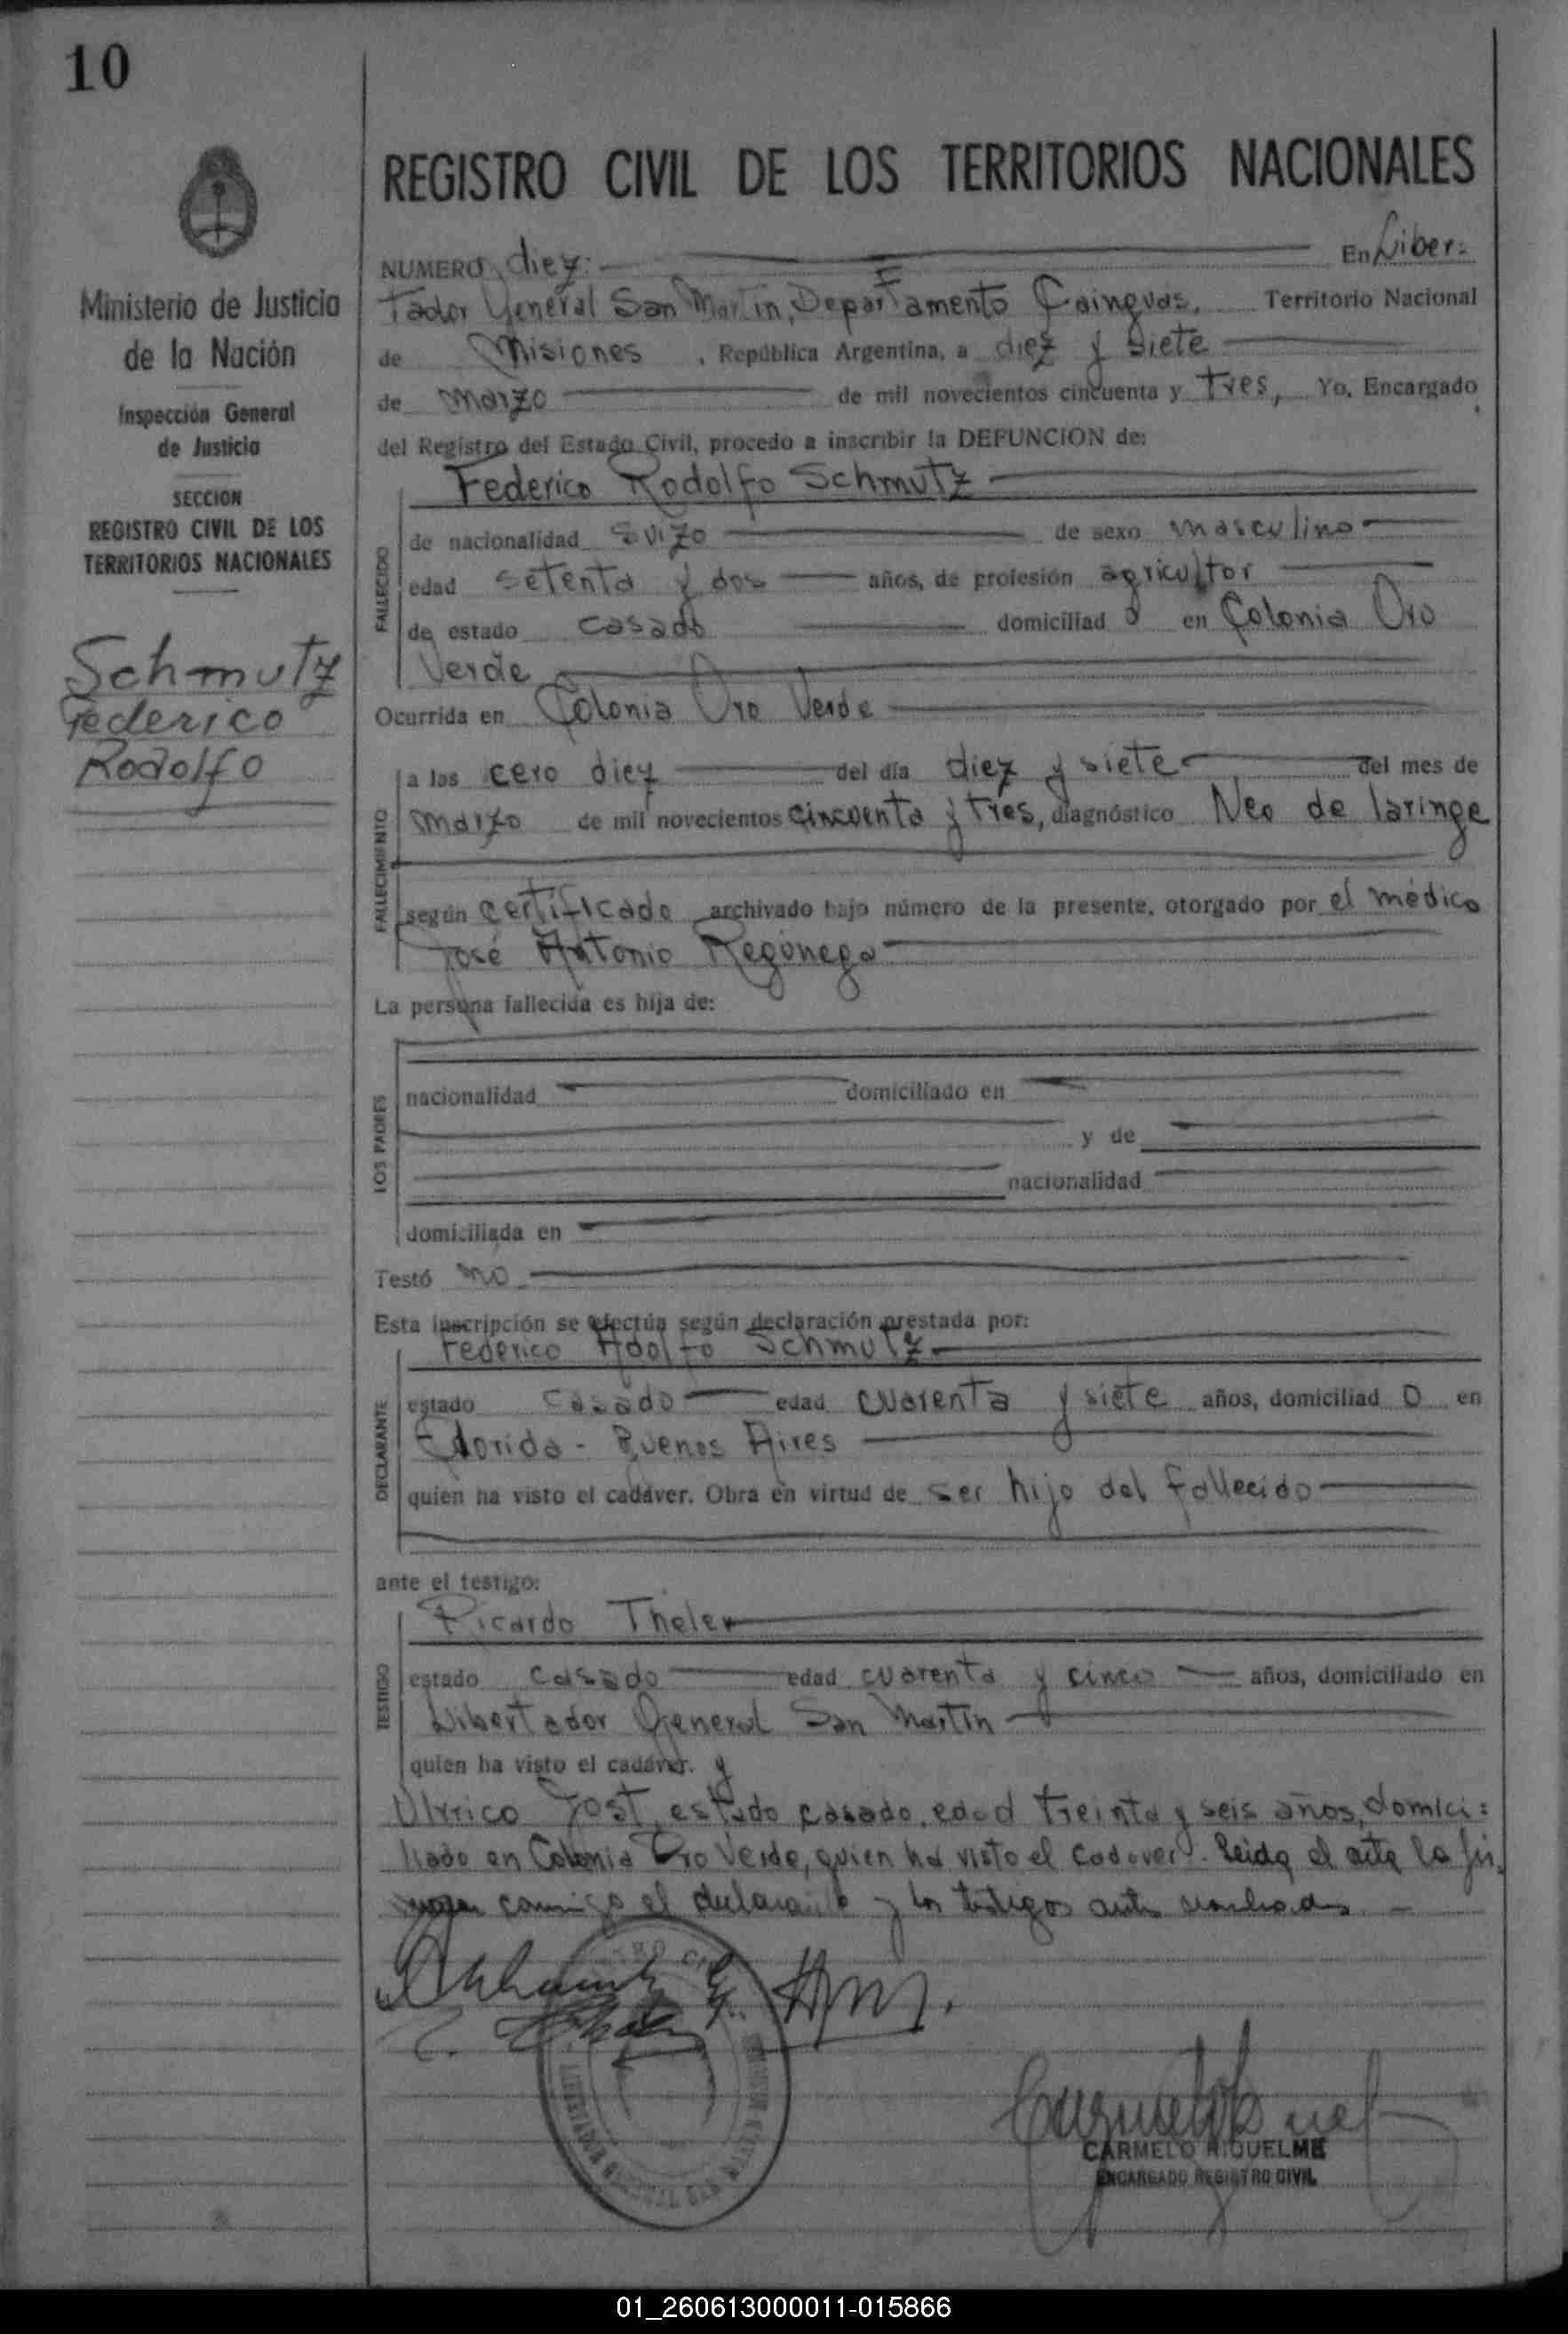 10
REGISTRO CIVIL DE LOS TERRITORIOS NACIONALES
Ministerio de Justicia
de la Nación
Inspección General
de Justicia
SECCION
REGISTRO CIVIL DE LOS
TERRITORIOS NACIONALES
Schmutz
Federico
Rodolfo
NUMERO diez: En Liber=
tador General San Martin, Departamento Cainguas, Territorio Nacional
de Misiones, República Argentina, a diez y siete
de marzo de mil novecientos cincuenta y tres, Yo, Encargado
del Registro del Estado Civil, procedo a inscribir la DEFUNCION de:
FALLECIDO
Federico Rodolfo Schmutz
de nacionalidad suizo de sexo masculino
edad setenta y dos años, de profesión agricultor
de estado casado domiciliad o en Colonia Oro
Verde
Ocurrida en Colonia Oro Verde
FALLECIMIENTO
a las cero diez del día diez y siete del mes de
marzo de mil novecientos cincuenta y tres, diagnóstico Neo de laringe
según certificado archivado bajo número de la presente, otorgado por el médico
José Antonio
La persona fallecida es hija de:
LOS PADRES
nacionalidad domiciliado en
y de
nacionalidad
domiciliada en
Testó no
Esta inscripción se efectúa según declaración prestada por:
DECLARANTE
Federico Adolfo Schmutz
estado casado edad cuarenta y siete años, domiciliad o en
Florida - Buenos Aires
quien ha visto el cadáver. Obra en virtud de ser hijo del fallecido
ante el testigo:
TESTIGO
Ricardo Theler
estado casado edad cuarenta y cinco años, domiciliado en
Libertador General San Martin
quien ha visto el cadáver. y
Ulrrico Jost, estado casado, edad treinta y seis años, domici=
liado en Colonia Oro Verde, quien ha visto el cadaver. Leida el acta la fir
conmigo el declarante y los testigos antes nombrados
CARMELO RIQUELME
ENCARGADO REGISTRO CIVIL
01_260613000011-015866